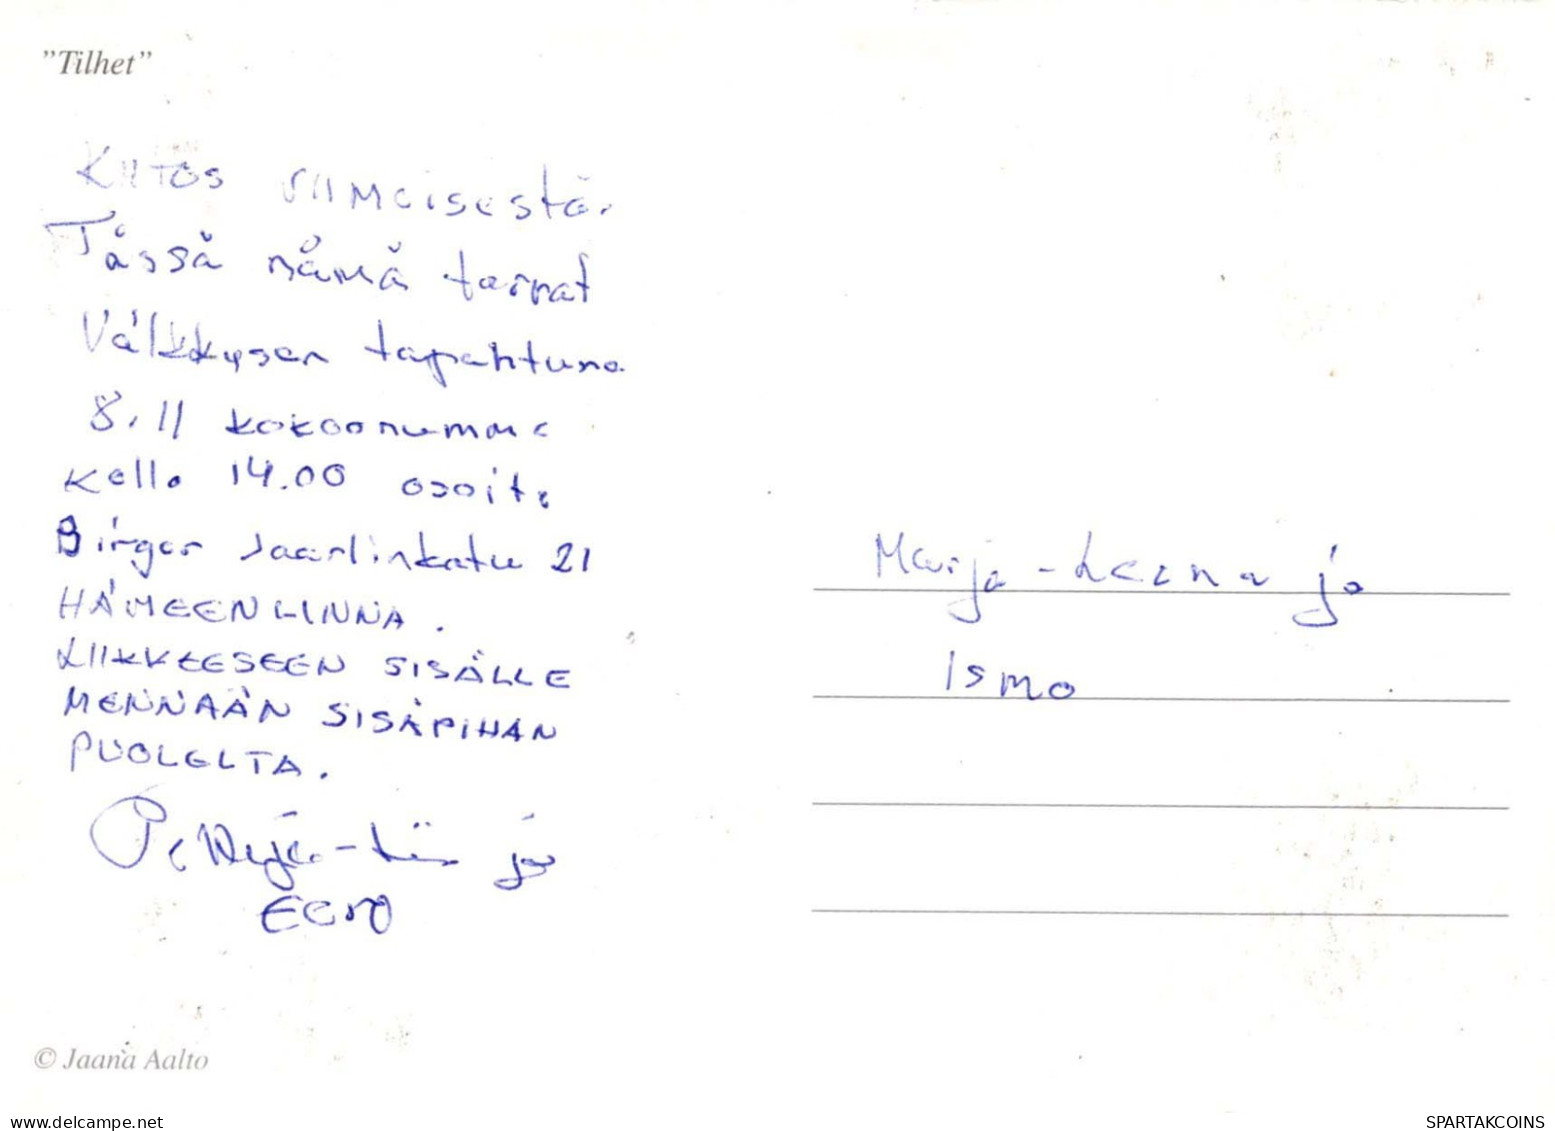 ”Tilhet”
Kiitos viimeisestä.
Tässä nämä tarrat
Välkkysen tapahtuma
8.11 kokoonnumme
Kello 14.00 osoite
Birger Jaarlinkatu 21
HÄMEENLINNA.
LIIKKEESEEN SISÄLLE
MENNÄÄN SISÄPIHAN
PUOLELTA.
ja
EERO
Marja-Leena ja
Ismo
© Jaana Aalto
www.delcampe.net
SPARTAKCOINS